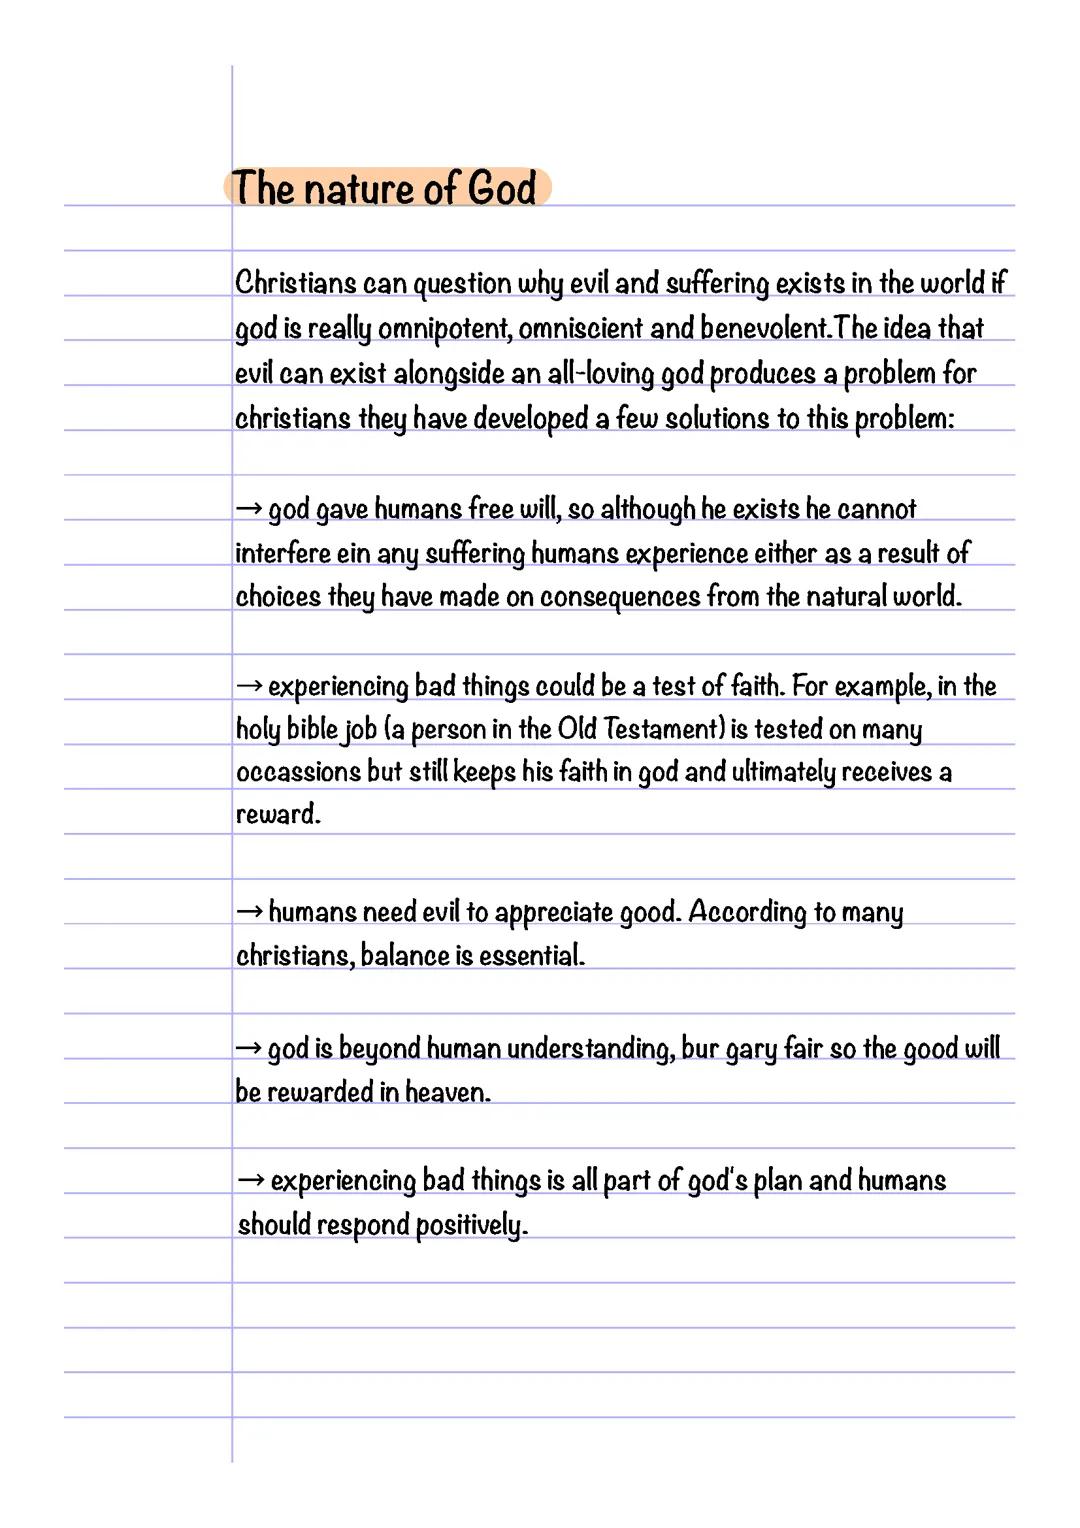 The nature of God
Christians can question why evil and suffering exists in the world if
god is really omnipotent, omniscient and benevolent.The idea that
evil can exist alongside an all-loving god produces a problem for
christians they have developed a few solutions to this problem:
→ god gave humans free will, so although he exists he cannot
interfere ein any suffering humans experience either as a result of
choices they have made on consequences from the natural world.
→ experiencing bad things could be a test of faith. For example, in the
holy bible job (a person in the Old Testament) is tested on many
occassions but still keeps his faith in god and ultimately receives a
reward.
→ humans need evil to appreciate good. According to many
christians, balance is essential.
→ god is beyond human understanding, bur gary fair so the good will
be rewarded in heaven.
→ experiencing bad things is all part of god's plan and humans
should respond positively.